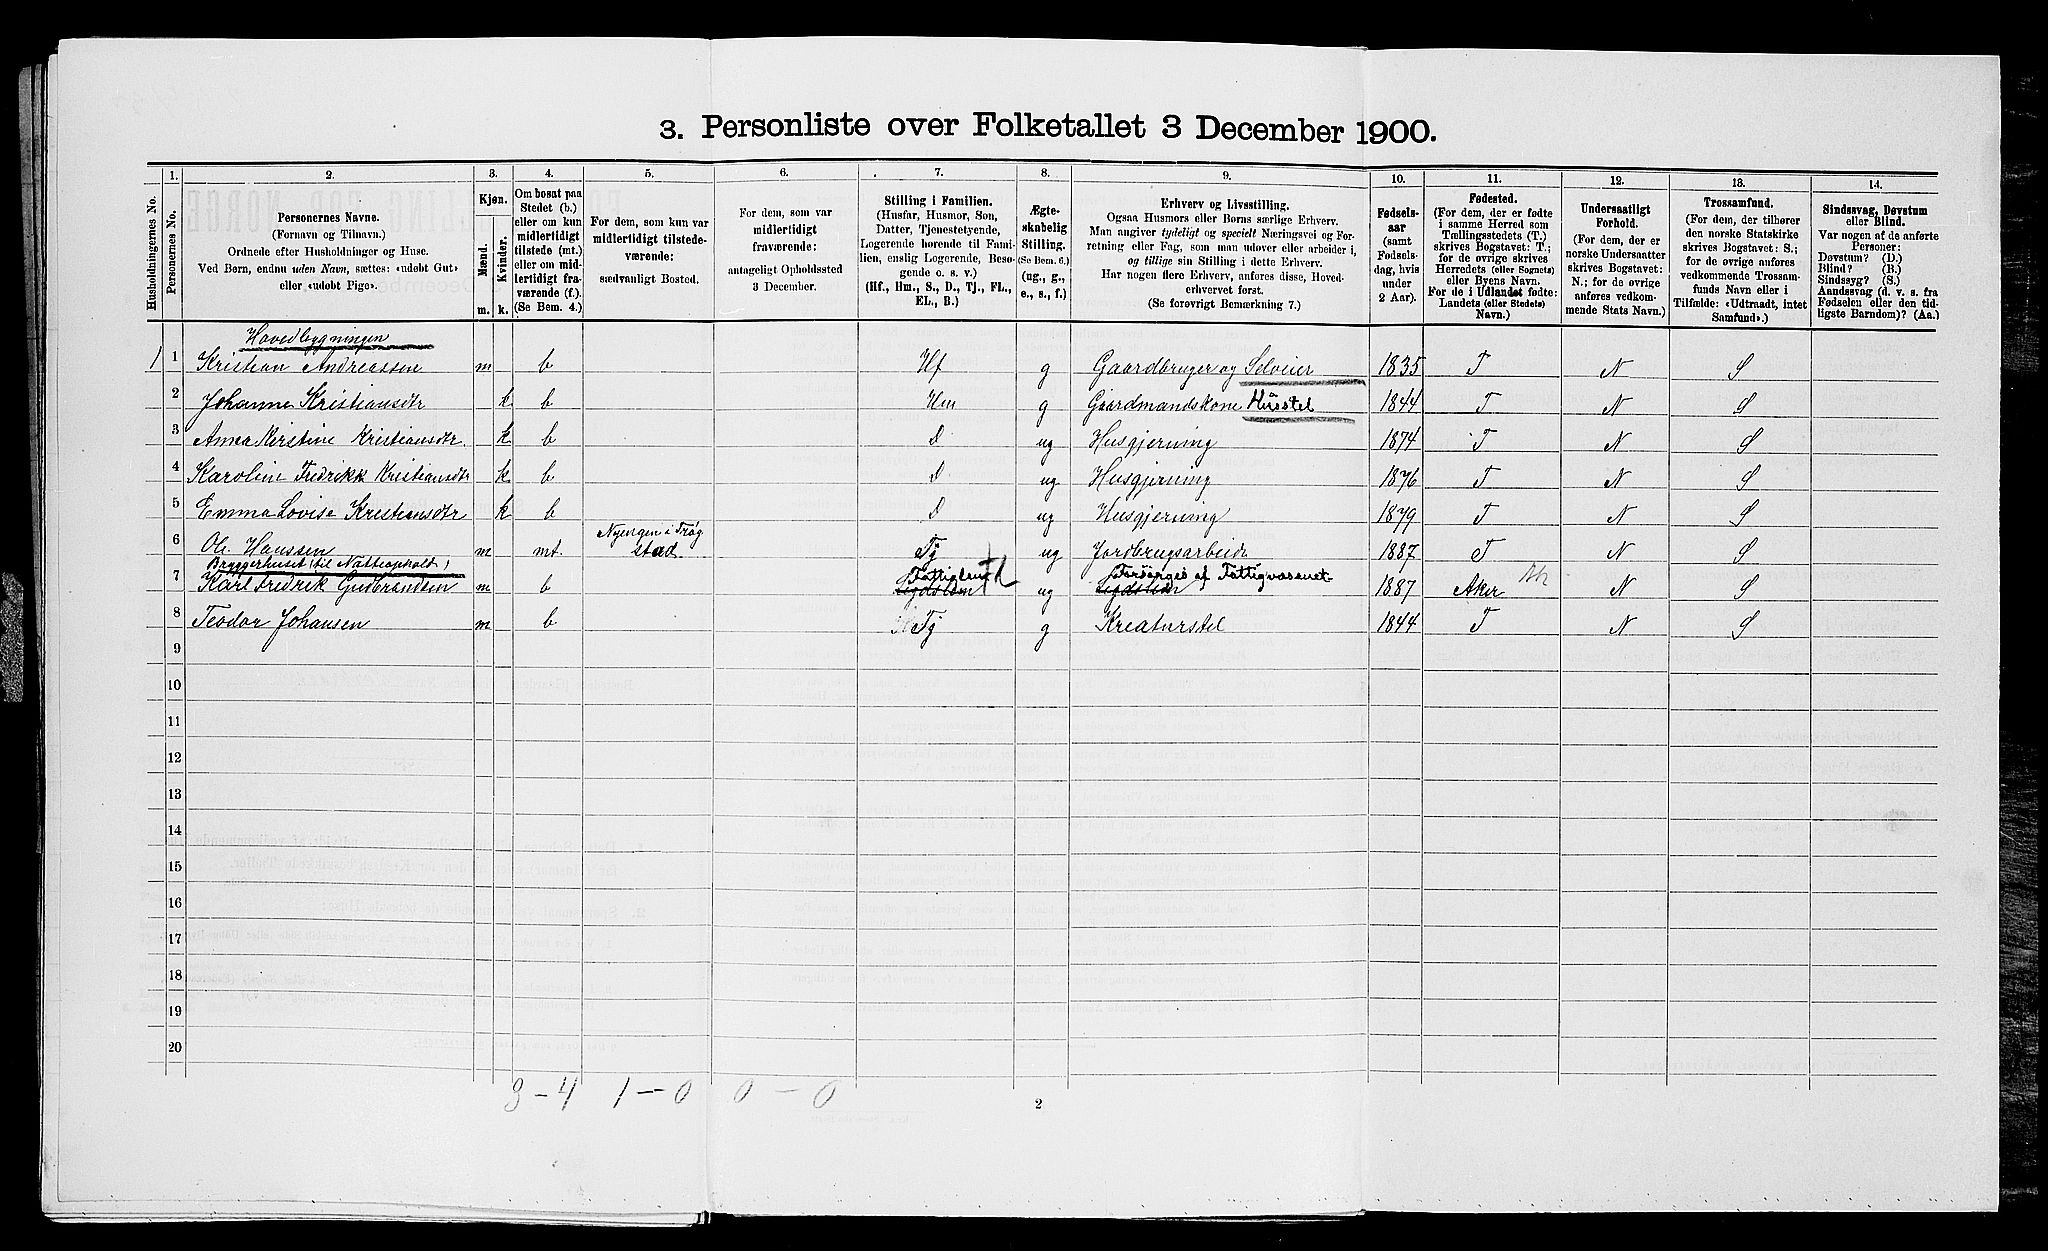 3. Personliste over Folketallet 3 December 1900.
Husholdningernes No.
1.
Personernes No.
2.
Personernes Navne.
(Fornavn og Tilnavn.)
Ordnede efter Husholdninger og Huse.
Ved Børn, endnu uden Navn, sættes: «udøbt Gut»
eller «udøbt Pige».
3.
Kjøn.
Mænd.
Kvinder.
m. k.
4.
Om bosat paa
Stedet (b.)
eller om kun
midlertidigt
tilstede (mt.)
eller om mid-
lertidigt fra-
værende (f.).
(Se Bem. 4.)
5.
For dem, som kun var
midlertidigt tilstede-
værende:
sædvanligt Bosted.
6.
For dem, som var
midlertidigt
fraværende:
antageligt Opholdssted
3 December.
7.
Stilling i Familien.
(Husfar, Husmor, Søn,
Datter, Tjenestetyende,
Logerende hørende til Fami-
lien, enslig Logerende, Besø-
gende o. s. v.)
(Hf., Hm., S., D., Tj., FL.,
EL., B.)
8.
Ægte-
skabelig
Stilling.
(Se Bem. 6.)
(ug., g.,
e., s., f.)
9.
Erhverv og Livsstilling.
Ogsaa Husmors eller Børns særlige Erhverv.
Man angiver tydeligt og specielt Næringsvei og For-
retning eller Fag, som man udøver eller arbeider i,
og tillige sin Stilling i dette Erhverv.
Har nogen flere Erhverv, anføres disse, Hoved-
erhvervet først.
(Se forøvrigt Bemærkning 7.)
10.
Fødsels-
aar
(samt
Fødsels-
dag, hvis
under
2 Aar).
11.
Fødested.
(For dem, der er fødte
i samme Herred som
Tællingsstedets (T.)
skrives Bogstavet: T.;
for de øvrige skrives
Herredets (eller Sognets)
eller Byens Navn.
For de i Udlandet fødte:
Landets (eller Stedets)
Navn.)
12.
Undersaatligt
Forhold.
(For dem, der er
norske Undersaatter
skrives Bogstavet:
N.; for de øvrige
anføres vedkom-
mende Stats Navn.)
13.
Trossamfund.
(For dem, der tilhører
den norske Statskirke
skrives Bogstavet: S.;
for de øvrige anføres
vedkommende Trossam-
funds Navn eller i
Tilfælde: «Udtraadt, intet
Samfund».)
14.
Sindssvag, Døvstum
eller Blind.
Var nogen af de anførte
Personer:
Døvstum? (D.)
Blind? (B.)
Sindssyg? (S.)
Aandssvag (d. v. s. fra
Fødselen eller den tid-
ligste Barndom)? (Aa.)
Hovedbygningen
1 1 Kristian Andreassen m b Hf g Gaardbruger og Selveier 1835 T N S
2 Johanne Kristiansdtr k b Hm g Gaardmandskone Husstel 1844 T N S
3 Anna Kirstine Kristiansdtr. k b D ug Husgjerning 1874 T N S
4 Karoline Fredrikk Kristiansdtr k b D ug Husgjerning 1876 T N S
5 Emma Lovise Kristiansdtr k b D ug Husgjerning 1879 T N S
6 Ole Hanssen m mt. Nyengen i Trøg Tj ug Jordbrugsarbeide 1887 T N S
stad
Bryggerhuset (til Natteophold)
7 Karl Fredrik Gudbrandsen m b Fattiglem ug Forsørges af Fattigvæsenet 1887 Aker N S
8 Teodor Johansen m b Tj g Kreaturstel 1844 T N S
9
10
11
12
13
14
15
16
17
18
19
20
3 - 4 1 - 0 0 - 0
2